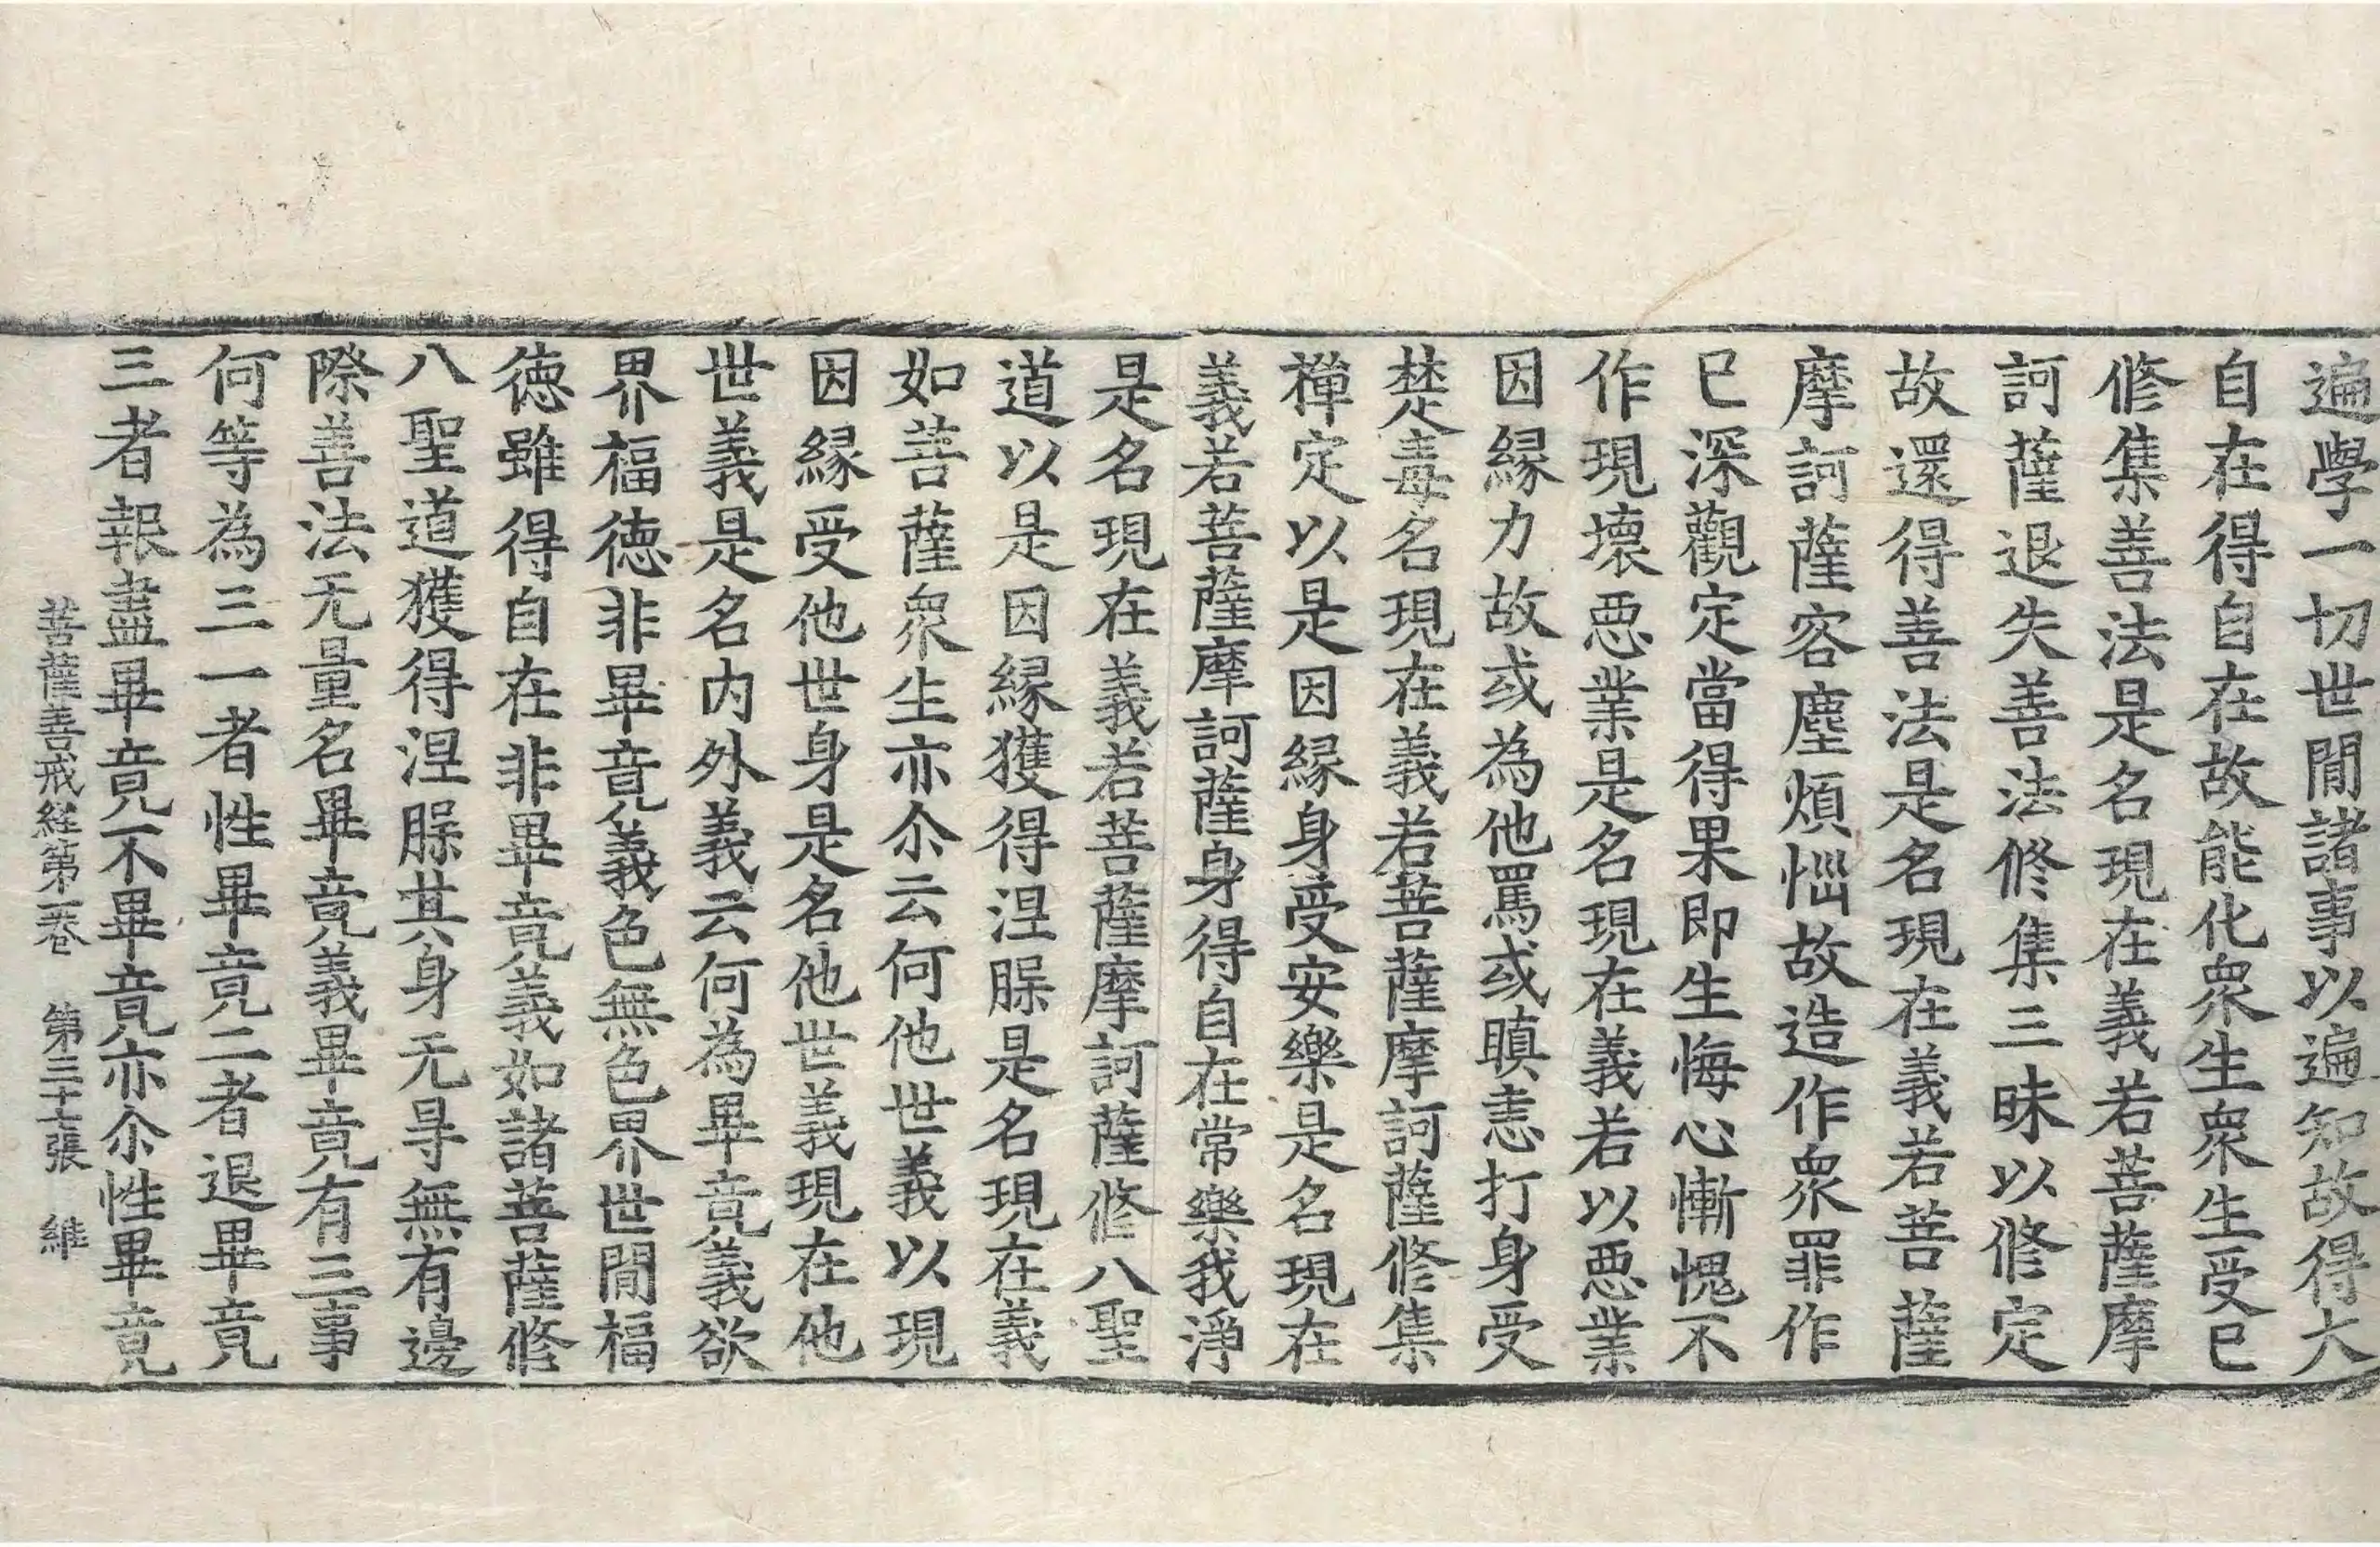 遍學一切世閒諸事以遍知故得大
自在得自在故能化衆生衆生受已
修集善法是名現在義若菩薩摩
訶薩退失善法修集三昧以修定
故還得善法是名現在義若菩薩
摩訶薩容塵煩惱故造作衆罪作
已深觀定當得果即生悔心慚愧不
作現壞惡業是名現在義若以惡業
因縁力故或為他罵或瞋恚打身受
楚毒名現在義若菩薩摩訶薩修集
禪定以是因縁身受安樂是名現在
義若菩薩摩訶薩身得自在常樂我淨
是名現在義若菩薩摩訶薩修八聖
道以是因縁獲得涅槃是名現在義
如菩薩衆生亦尒云何他世義以現
因縁受他世身是名他世義現在他
世義是名内外義云何為畢竟義欲
界福徳非畢竟義色無色界世閒福
徳雖得自在非畢竟義如諸菩薩修
八聖道獲得涅槃其身无㝵無有邊
際善法无量名畢竟義畢竟有三事
何等為三一者性畢竟二者退畢竟
三者報盡畢竟不畢竟亦尒性畢竟
菩薩善戒経第一巻 第三十七張 維